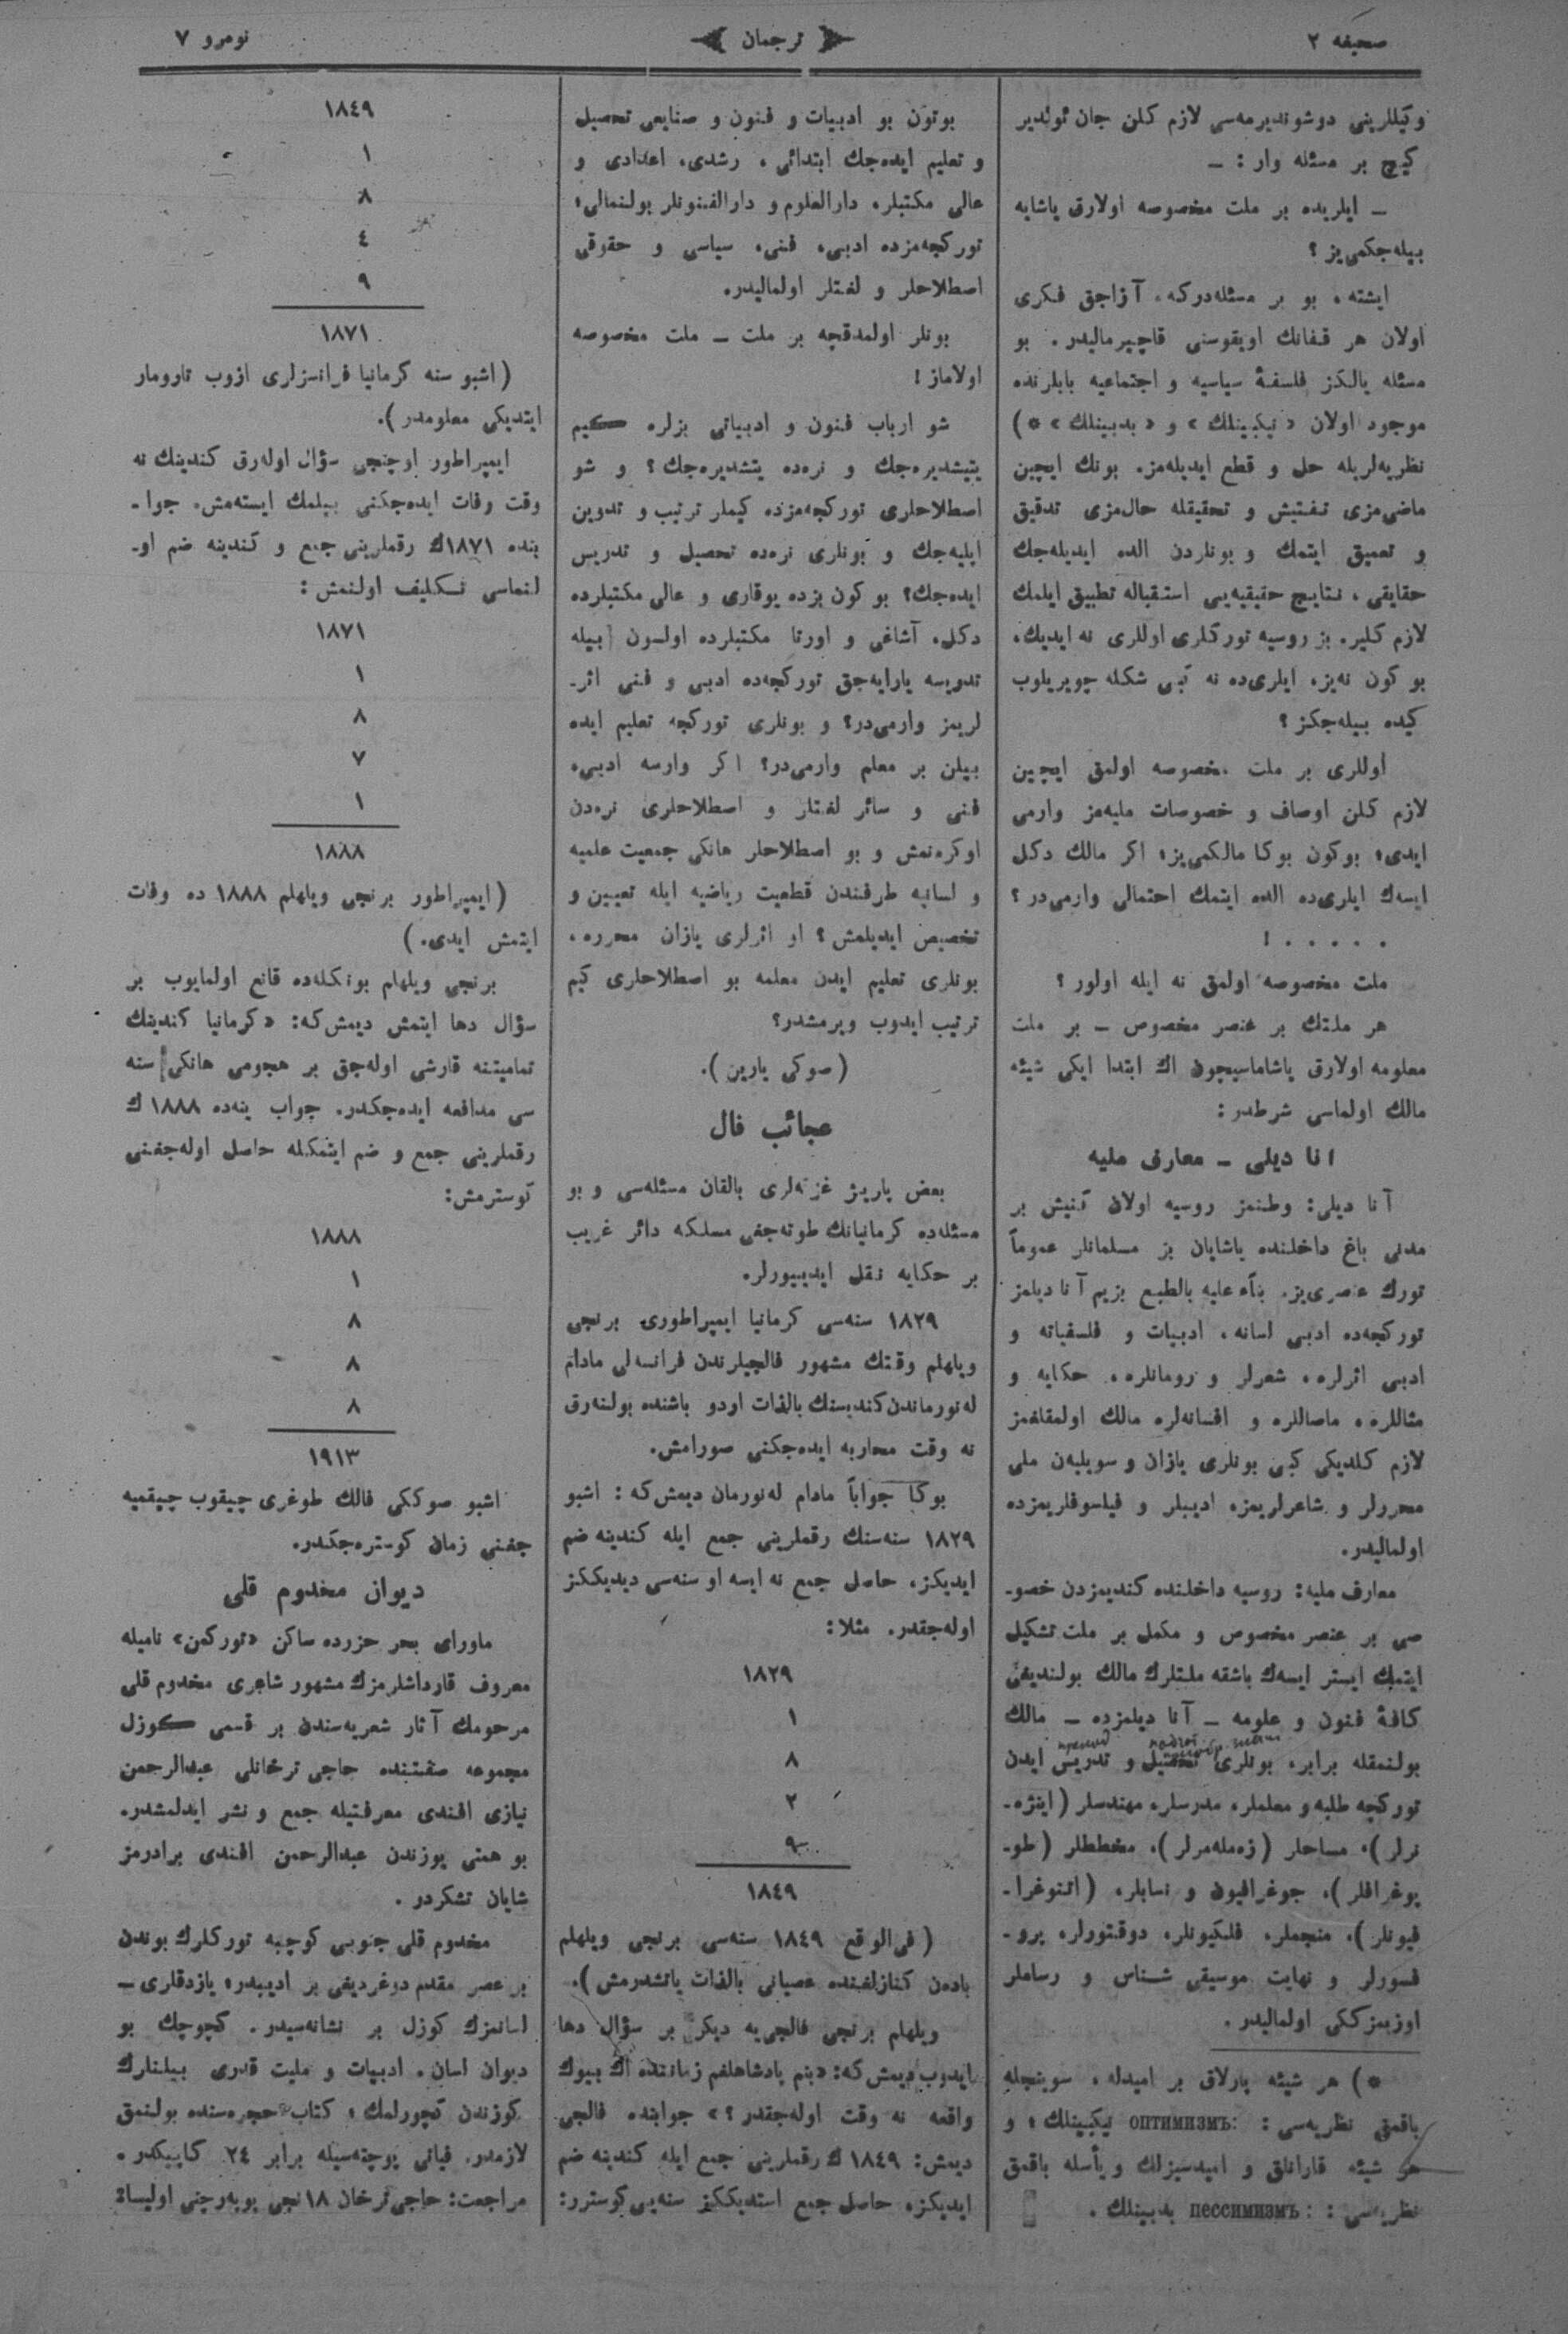 صحیفه ۲
ترجمان
نومرو ۷
وکیللرینی دوشوندیرمه‌سی لازم کلن جان ئولدیر
کیچ بر مسئله وار : ـ
ـ ایلریده بر ملت مخصوصه اولارق یاشایه
بیله‌جکمی‌یز ؟
ایشته، بو بر مسئله‌درکه، آزاجق فکری
اولان هر قفانك اویقوسنی قاچیرمالیدر. بو
مسئله یالکز فلسفهٔ سیاسیه و اجتماعیه بابلرنده
موجود اولان «نیکبینلك» و «بدبینلك» *)
نظریه‌لریله حل و قطع ایدیله‌مز. بونك ایچین
ماضی‌مزی تفتیش و تحقیقله حال‌مزی تدقیق
و تعمیق ایتمك و بونلردن الده ایدیله‌جك
حقایقی، نتایج حقیقیه‌یی استقباله تطبیق ایلمك
لازم کلیر. بز روسیه تورکلری اوللری نه ایدیك،
بو کون نه‌یز، ایلری‌ده نه کبی شکله چویریلوب
کیده بیله‌جکز ؟
اوللری بر ملت مخصوصه اولمق ایچین
لازم کلن اوصاف و خصوصات ملیه‌مز وارمی
ایدی؛ بوکون بوکا مالکمی‌یز؛ اکر مالك دکل
ایسه‌ك ایلری‌ده الده ایتمك احتمالی وارمی‌در ؟
. . . . . !
ملت مخصوصه اولمق نه ایله اولور ؟
هر ملتك بر عنصر مخصوص ـ بر ملت
معلومه اولارق یاشاماسیچون اك ابتدا ایکی شیئه
مالك اولماسی شرطدر :
انا دیلی ـ معارف ملیه
آنا دیلی: وطنمز روسیه اولان کنیش بر
مدنی باغ داخلنده یاشایان بز مسلمانلر عموماً
تورك عنصری‌یز. بناءً علیه بالطبع بزیم آنا دیلمز
تورکجه‌ده ادبی لسانه، ادبیات و فلسفیاته و
ادبی اثرلره، شعرلر و رومانلره، حکایه و
مثاللره، ماصاللره و افسانه‌لره مالك اولمقلغمز
لازم کلدیکی کبی بونلری یازان و سویلیه‌ن ملی
محررلر و شاعرلریمزه ادیبلر و فیلسوفلریمزده
اولمالیدر.
معارف ملیه: روسیه داخلنده کندیمزدن خصو-
صی بر عنصر مخصوص و مکمل بر ملت تشکیل
ایتمك ایستر ایسه‌ك باشقه ملتلرك مالك بولندیغی
کافهٔ فنون و علومه ـ آنا دیلمزده ـ مالك
بولنمقله برابر، بونلری تحصیل و تدریس ایدن
تورکجه طلبه و معلملر، مدرسلر، مهندسلر (اینژه-
نرلر)، مساحلر (زه‌مله‌مرلر)، مخططلر (طو-
پوغرافلر)، جوغرافیون و نسابلر، (اتنوغرا-
فیونلر)، منجملر، فلکیونلر، دوقتورلر، پرو-
فسورلر و نهایت موسیقی شناس و رساملر
اوزیمزککی اولمالیدر.
*) هر شیئه پارلاق بر امیدله، سوینجله
باقمق نظریه‌سی : оптимизмъ: نیکبینلك؛ و
هر شیئه قارانلق و امیدسیزلك و یأسله باقمق
نظریه‌سی : пессимизмъ: بدبینلك.
بوتون بو ادبیات و فنون و صنایعی تحصیل
و تعلیم ایده‌جك ابتدائی، رشدی، اعدادی و
عالی مکتبلر، دارالعلوم و دارالفنونلر بولنمالی؛
تورکجه‌مزده ادبی، فنی، سیاسی و حقوقی
اصطلاحلر و لغتلر اولمالیدر.
بونلر اولمدقچه بر ملت ـ ملت مخصوصه
اولاماز !
شو ارباب فنون و ادبیاتی بزلره کیم
یتیشدیره‌جك و نره‌ده یتشدیره‌جك ؟ و شو
اصطلاحلری تورکجه‌مزده کیملر ترتیب و تدوین
ایلیه‌جك و بونلری نره‌ده تحصیل و تدریس
ایده‌جك؟ بو کون بزده یوقاری و عالی مکتبلرده
دکل، آشاغی و اورتا مکتبلرده اولسون بیله
تدریسه یارایه‌جق تورکجه‌ده ادبی و فنی اثر-
لریمز وارمی‌در؟ و بونلری تورکجه تعلیم ایده
بیلن بر معلم وارمی‌در؟ اکر وارسه ادبی،
فنی و سائر لغتلر و اصطلاحلری نره‌دن
اوکره‌نمش و بو اصطلاحلر هانکی جمعیت علمیه
و لسانیه طرفندن قطعیت ریاضیه ایله تعیین و
تخصیص ایدیلمش ؟ او اثرلری یازان محرره،
بونلری تعلیم ایدن معلمه بو اصطلاحلری کیم
ترتیب ایدوب ویرمشدر؟
(صوکی یارین).
عجائب فال
بعض پاریژ غزته‌لری بالقان مسئله‌سی و بو
مسئله‌ده کرمانیانك طوته‌جغی مسلکه دائر غریب
بر حکایه نقل ایدییورلر.
۱۸۲۹ سنه‌سی کرمانیا ایمپراطوری برنجی
ویلهلم وقتك مشهور فالجیلرندن فرانسه‌لی مادام
له‌نورماندن کندیسنك بالذات اردو باشنده بولنه‌رق
نه وقت محاربه ایده‌جکنی صورامش.
بوکا جواباً مادام له‌نورمان دیمش‌که : اشبو
۱۸۲۹ سنه‌سنك رقملرینی جمع ایله کندینه ضم
ایدیکز، حاصل جمع نه ایسه او سنه‌سی دیدیککز
اوله‌جقدر. مثلا:
۱۸۲۹
۱
۸
۲
۹
۱۸٤۹
(فی‌الواقع ۱۸٤۹ سنه‌سی برنجی ویلهلم
باده‌ن کنازلغنده عصیانی بالذات یاتشدرمش).
ویلهلم برنجی فالجی‌یه دیکر بر سؤال دها
ایدوب دیمش‌که: «بنم پادشاهلغم زماننده اك بیوك
واقعه نه وقت اوله‌جقدر ؟» جوابنده فالجی
دیمش: ۱۸٤۹ ك رقملرینی جمع ایله کندینه ضم
ایدیکز، حاصل جمع استدیککز سنه‌یی کوسترر:
۱۸٤۹
۱
۸
٤
۹
۱۸۷۱
(اشبو سنه کرمانیا فرانسزلری ازوب تارومار
ایتدیکی معلومدر).
ایمپراطور اوچنجی سؤال اوله‌رق کندینك نه
وقت وفات ایده‌جکنی بیلمك ایسته‌مش. جوا-
بنده ۱۸۷۱ك رقملرینی جمع و کندینه ضم او-
لنماسی تکلیف اولنمش :
۱۸۷۱
۱
۸
۷
۱
۱۸۸۸
(ایمپراطور برنجی ویلهلم ۱۸۸۸ ده وفات
ایتمش ایدی.)
برنجی ویلهلم بونکله‌ده قانع اولمایوب بر
سؤال دها ایتمش دیمش‌که: «کرمانیا کندینك
تمامیتنه قارشی اوله‌جق بر هجومی هانکی سنه
سی مدافعه ایده‌جکدر. جواب ینه‌ده ۱۸۸۸ ك
رقملرینی جمع و ضم ایتمکله حاصل اوله‌جغنی
کوسترمش:
۱۸۸۸
۱
۸
۸
۸
۱۹۱۳
اشبو صوککی فالك طوغری چیقوب چیقمیه
جغنی زمان کوستره‌جکدر.
دیوان مخدوم قلی
ماورای بحر حزرده ساکن «تورکمن» نامیله
معروف قارداشلرمزك مشهور شاعری مخدوم قلی
مرحومك آثار شعریه‌سندن بر قسمی کوزل
مجموعه صفتنده حاجی ترخانلی عبدالرحمن
نیازی افندی معرفتیله جمع و نشر ایدلمشدر.
بو همتی یوزندن عبدالرحمن افندی برادرمز
شایان تشکردر.
مخدوم قلی جنوبی کوچبه تورکلرك بوندن
بر عصر مقدم دوغردیغی بر ادیبدر؛ یازدقلری ـ
لسانمزك کوزل بر نشانه‌سیدر. کچوچك بو
دیوان لسان، ادبیات و ملیت قدری بیلنلرك
کوزندن کچورلمك، کتاب حجره‌سنده بولنمق
لازمدر. فیاتی پوچته‌سیله برابر ۲٤ کاپیکدر.
مراجعت: حاجی‌ترخان ۱۸نجی پوبه‌رچنی اولیسا: